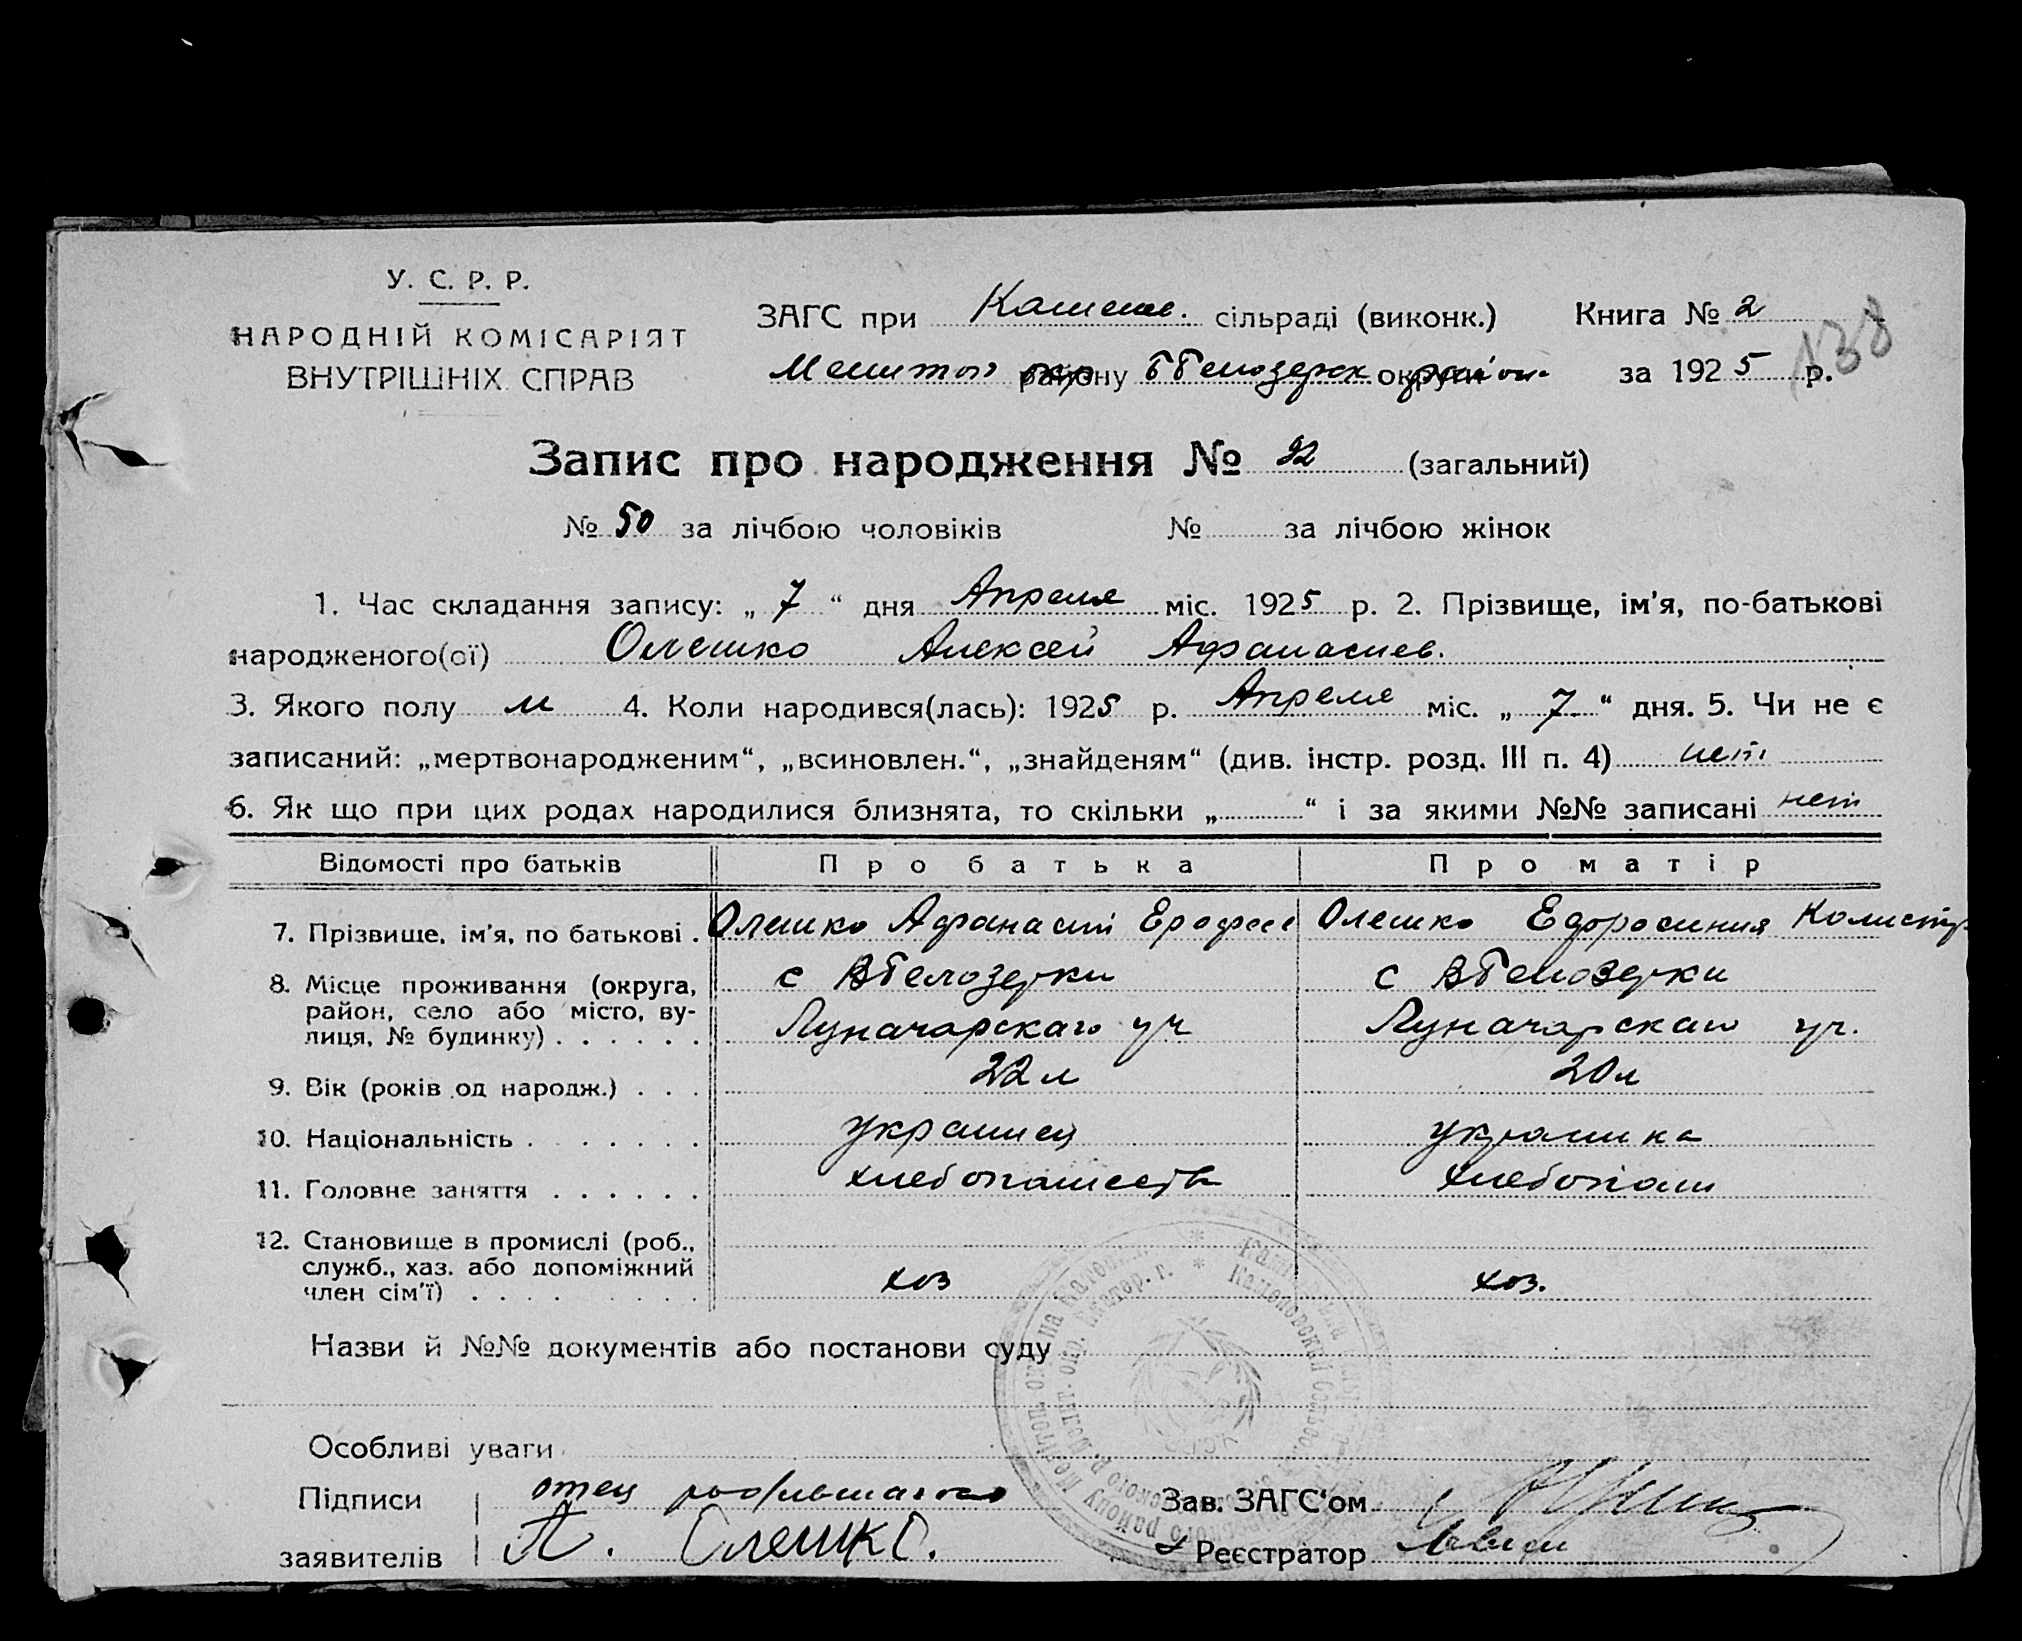 У. С. Р. Р.
НАРОДНІЙ КОМІСАРІЯТ
ВНУТРІШНІХ СПРАВ
ЗАГС при Каменс. сільраді (виконк.) Книга № 2
138
району округи за 1925 р.
Запис про народження № 92 (загальний)
№ 50 за лічбою чоловіків № за лічбою жінок
1. Час складання запису: „ 7 “ дня Апреля міс. 1925 р. 2. Прізвище, ім’я, по-батькові
народженого(ої) Олешко Алексей Афанасиев.
3. Якого полу м 4. Коли народився(лась): 1925 р. Апреля міс. „ 7. “ дня. 5. Чи не є
записаний: „мертвонародженим“, „всиновлен.“, „знайденям“ (див. інстр. розд. III п. 4) нет
6. Як що при цих родах народилися близнята, то скільки „ “ і за якими №№ записані нет
Відомості про батьків Про батька Про матір
7. Прізвище, ім’я, по батькові . Олешко Афанасий Ерофее Олешко Калистр
8. Місце проживання (округа, с ВБелозерки с ВБелозерки
район, село або місто, ву-
лиця, № будинку) . . . . . . Луначарскаго уч Луначарскаго уч.
9. Вік (років од народж.) . . . 22 л 20 л
10. Національність . . . . . . . украинец украинка
11. Головне заняття . . . . . . хлебопашеств хлебопаш
12. Становище в промислі (роб.,
служб., хаз. або допоміжний
член сім’ї) . . . . . . . . . хоз хоз.
Назви й №№ документів або постанови суду
Особливі уваги
Підписи отец Зав. ЗАГС‘ом
заявителів А. Олешко. Реєстратор